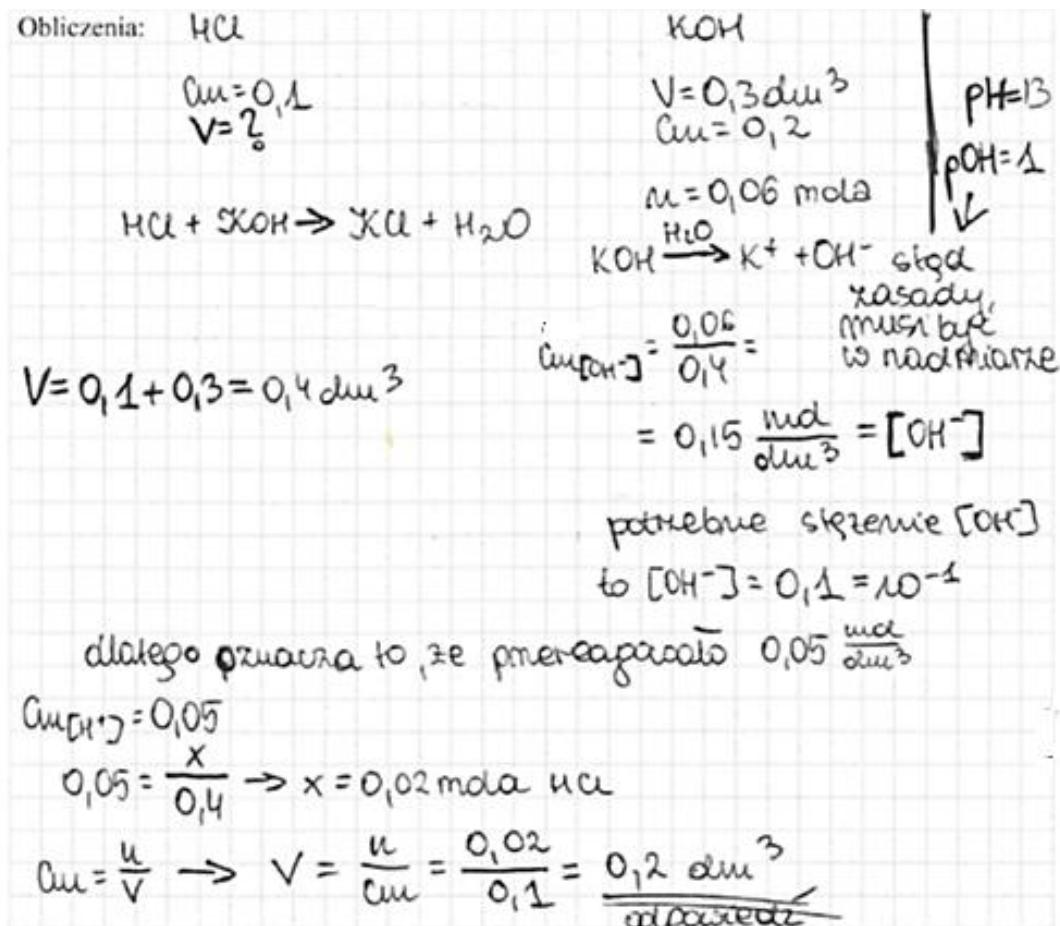 Obliczenia: HCl
Cm = 0,1
V = ?
HCl + KOH → KCl + H₂O
V = 0,1 + 0,3 = 0,4 dm³
KOH
V = 0,3 dm³
Cm = 0,2
n = 0,06 mola
KOH —H₂O→ K⁺ + OH⁻
pH=13
pOH=1
↓
stąd
zasady,
musi być
w nadmiarze
Cm[OH⁻] = 0,06/0,4 =
= 0,15 mol/dm³ = [OH⁻]
potrzebne stężenie [OH⁻]
to [OH⁻] = 0,1 = 10⁻¹
dlatego oznacza to, że przereagowało 0,05 mol/dm³
Cm[H⁺] = 0,05
0,05 = x/0,4 → x = 0,02 mola HCl
Cm = n/V → V = n/Cm = 0,02/0,1 = 0,2 dm³
odpowiedź